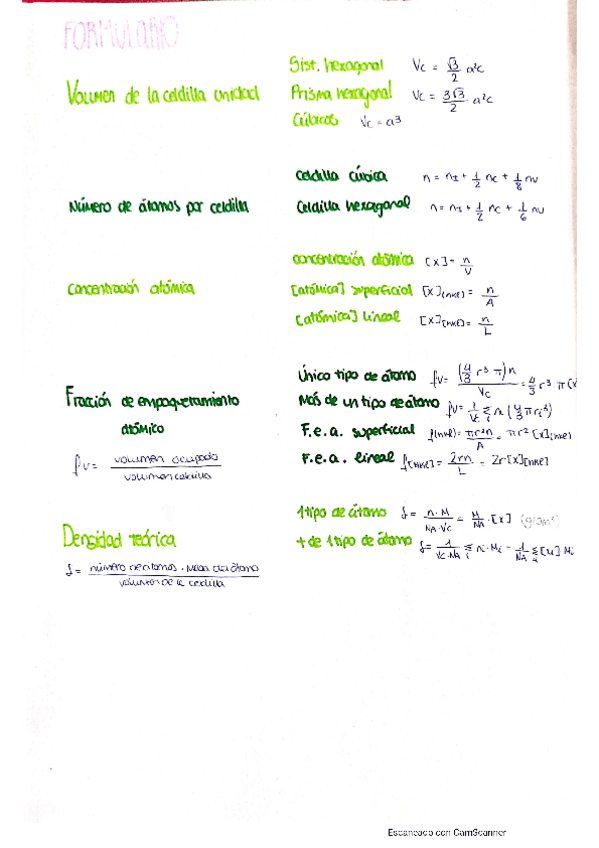 FORMULARIO
Volumen de la celdilla unidad
Sist. hexagonal Vc = √3/2 a²c
Prisma hexagonal Vc = 3√3/2 a²c
Cúbicos Vc = a³
Número de átomos por celdilla
Celdilla cúbica n = nI + 1/2 nc + 1/8 nv
Celdilla hexagonal n = nI + 1/2 nc + 1/6 nv
Concentración atómica
concentración atómica [x] = n/V
[atómica] superficial [x](hkl) = n/A
[atómica] lineal [x][hkl] = n/L
Fracción de empaquetamiento
atómico
fv = volumen ocupado / volumen celdilla
Único tipo de átomo fv = (4/3 r³ π) n / Vc = 4/3 r³ π [x
Más de un tipo de átomo fv = 1/Vc Σi ni (4/3 π ri³)
F.e.a. superficial f(hkl) = πr²n/A = πr² [x](hkl)
F.e.a. lineal f[hkl] = 2rn/L = 2r[x][hkl]
Densidad teórica
δ = número de átomos · Masa del átomo / volumen de la celdilla
1 tipo de átomo δ = n·M / NA·Vc = M/NA · [x]
+ de 1 tipo de átomo δ = 1/Vc·NA Σi ni·Mi = 1/NA Σi [x] Mi
Escaneado con CamScanner